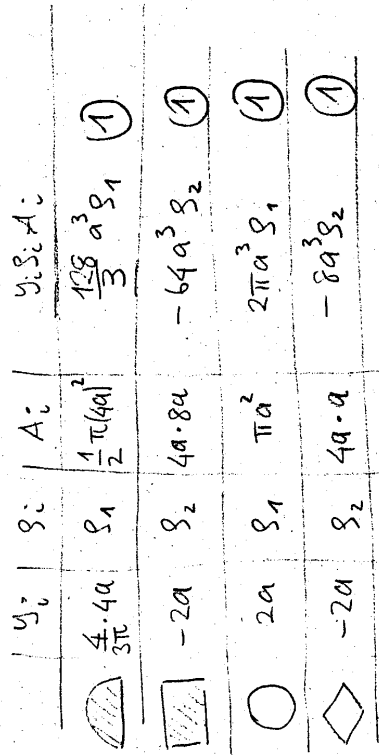 y_i | ρ_i | A_i | y_i ρ_i A_i
4/3π · 4a | ρ_1 | 1/2 π(4a)^2 | 128/3 a^3 ρ_1 ①
-2a | ρ_2 | 4a·8a | -64a^3 ρ_2 ①
2a | ρ_1 | πa^2 | 2πa^3 ρ_1 ①
-2a | ρ_2 | 4a·a | -8a^3 ρ_2 ①